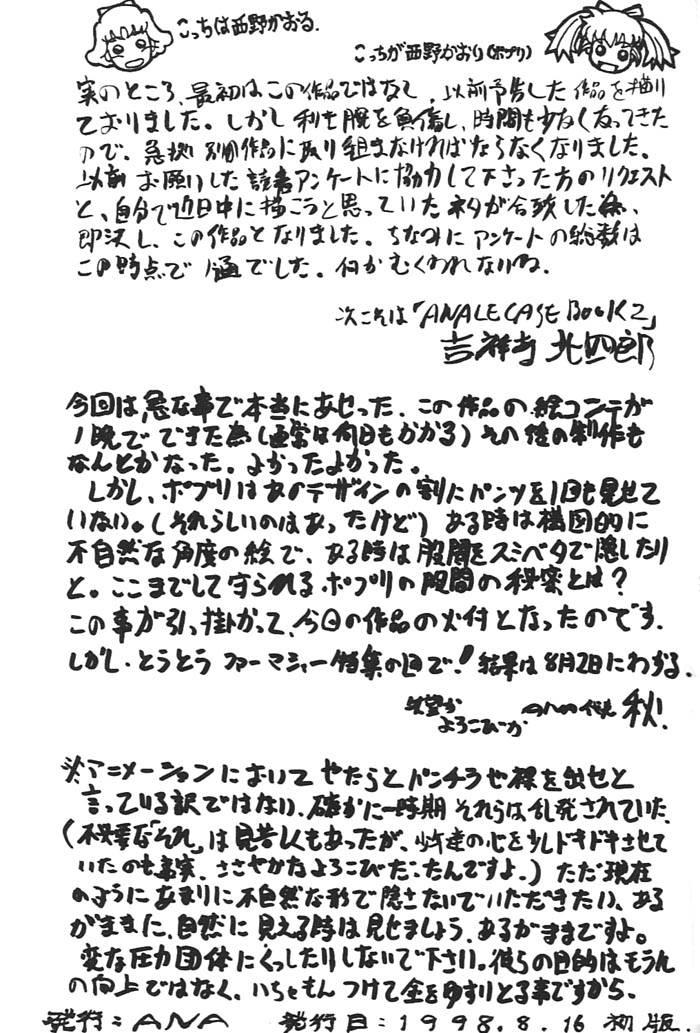 こっちは西野かおる.
こっちが西野かおり(ポプリ)
実のところ、最初はこの作品ではなく、以前予告した作品を描い
ておりました。しかし利き腕を負傷し、時間も少なくなってきた
ので、急拠 別の作品に取り組まなければならなくなりました。
以前 お願いした読者アンケートに協力して下さった方のリクエスト
と、自分で近日中に描こうと思っていたネタが合致した為、
即決し、この作品となりました。ちなみに アンケートの総数は
この時点で 1通でした。何かむくわれないね.
次こそは「ANALE CASE BOOK 2」
吉祥寺 北四郎
今回は急な事で本当にあせった. この作品の絵コンテが
1晩で できた為(通常は何日もかかる) その後の制作も
なんとかなった. よかったよかった。
しかし、ポプリはあのデザインの割にパンツを1回も見せて
いない。(それらしいのはあったけど) ある時は構図的に
不自然な角度の絵で、ある時は股間をスミベタで隠したり
と。ここまでして守られる ポプリの股間の秘密とは?
この事が引っ掛かって、今回の作品の火付となったのです.
しかし・とうとう ファーマシャー 特集の回で・! 結果は8月2日にわかる.
よろこびーか
秋!
※アニメーションにおいて やたらとパンチラや裸を出せと
言っている訳ではない. 確かに一時期 それらは乱発されていた.
(不必要な"それ"は 見苦しくもあったが、少年達の心を少しドキドキさせて
いたのも事実. ささやかなよろこびだったんですよ.) ただ現在
のように あまりに不自然な形で隠さないでいただきたい、ある
がままに、自然に 見える時は見せましょう. あるがままですよ。
変な圧力団体にくっしたりしないで下さい。彼らの目的はもうん
の向上ではなく、いちゃもん つけて金をゆすりとる事ですから.
発行:ANA 発行日:1998.8.16 初版.